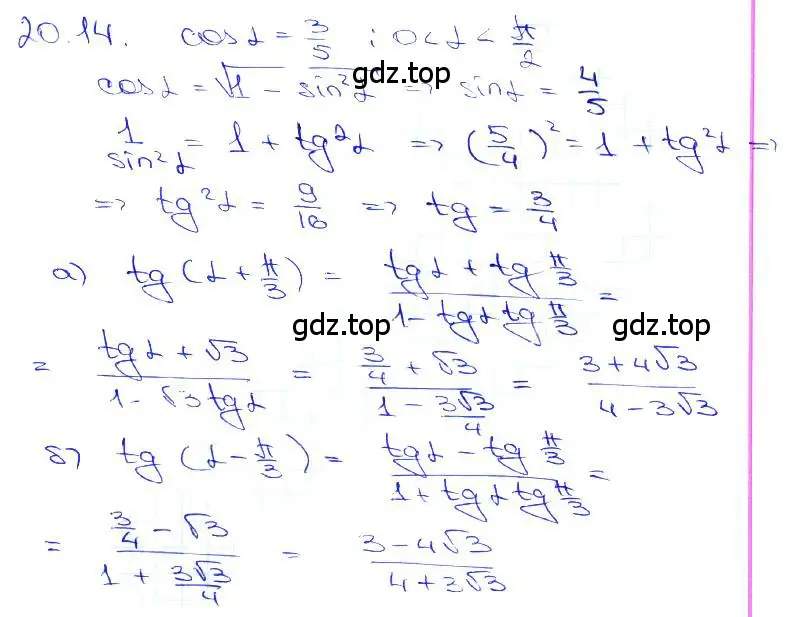 20.14. cos α = 3/5 ; 0 < α < π/2
gdz.top
cos α = √(1 - sin²α) => sin α = 4/5
1/sin²α = 1 + tg²α => (5/4)² = 1 + tg²α =>
=> tg²α = 9/16 => tg = 3/4
а) tg(α + π/3) = (tg α + tg π/3)/(1 - tg α tg π/3) =
gdz.top gdz.top
= (tg α + √3)/(1 - √3 tg α) = (3/4 + √3)/(1 - 3√3/4) = (3 + 4√3)/(4 - 3√3)
б) tg(α - π/3) = (tg α - tg π/3)/(1 + tg α tg π/3) =
= (3/4 - √3)/(1 + 3√3/4) = (3 - 4√3)/(4 + 3√3)